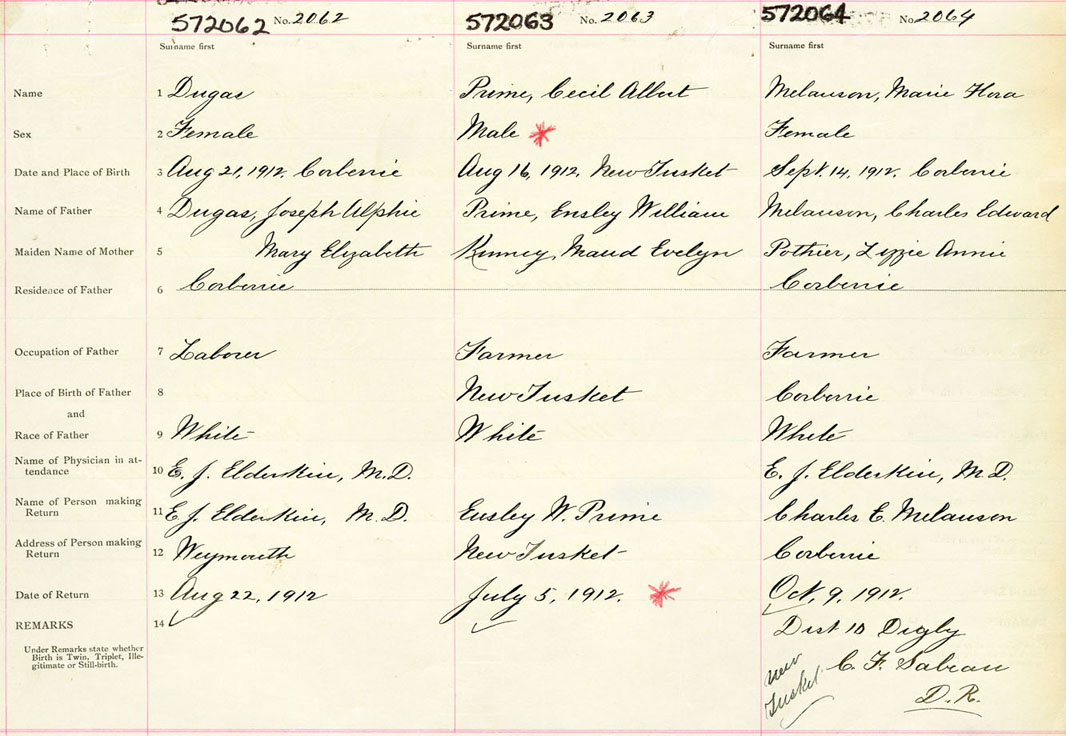 572062 No. 2062 572063 No. 2063 572064 No. 2064
Surname first Surname first Surname first
Name 1 Dugas Prime, Cecil Albert Melanson, Marie Flora
Sex 2 Female Male * Female
Date and Place of Birth 3 Aug 21, 1912. Corberrie Aug 16, 1912. New Tusket Sept. 14, 1912. Corberrie
Name of Father 4 Dugas, Joseph Alphie Prime, Ensley William Melanson, Charles Edward
Maiden Name of Mother 5 Mary Elizabeth Kinney, Maud Evelyn Pothier, Lizzie Annie
Residence of Father 6 Corberrie Corberrie
Occupation of Father 7 Laborer Farmer Farmer
Place of Birth of Father 8 New Tusket Corberrie
and
Race of Father 9 White White White
Name of Physician in at-
tendance 10 E. J. Elderkin, M.D. E. J. Elderkin, M.D.
Name of Person making
Return 11 E J. Elderkin, M.D. Ensley W. Prime Charles E. Melanson
Address of Person making
Return 12 Weymouth New Tusket Corberrie
Date of Return 13 Aug 22, 1912 July 5, 1912. * Oct. 9, 1912.
REMARKS 14 Dist 10 Digby
Under Remarks state whether
Birth is Twin, Triplet, Ille-
gitimate or Still-birth.
new
Tusket
C. F. Sabean
D. R.